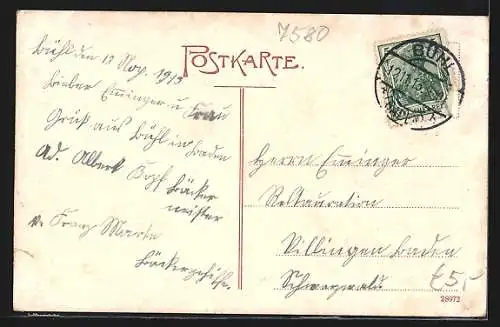 7580
POSTKARTE.
BÜHL
Bühl den 13 Nov. 1913
Lieber Emminger u. Frau
Gruß aus Bühl in Baden
Ad. Albert Kopf Bäcker
meister
v. Franz Marte
Bäckergehilfe.
Herrn Emminger
Restauration
Villingen Baden
Schwarzwald.
£5,-
28972